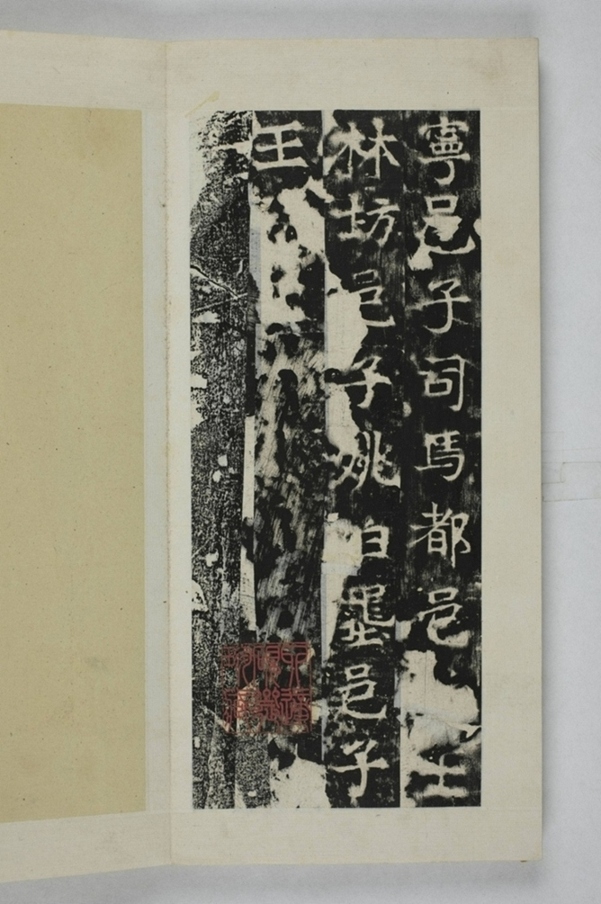 寧邑子司馬都邑王
林坊邑子姚白墨邑子
王